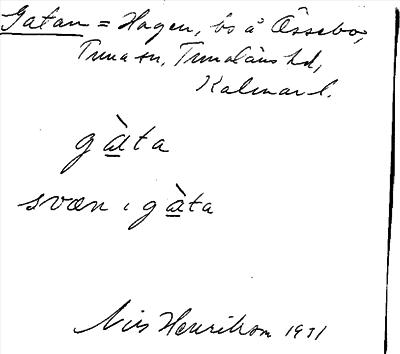 Gatan = Hagen, bs å Össebo,
Tuna sn, Tunaläns hd,
Kalmar l.
gàta
svæn i gàta
Nils Henrikson 1931